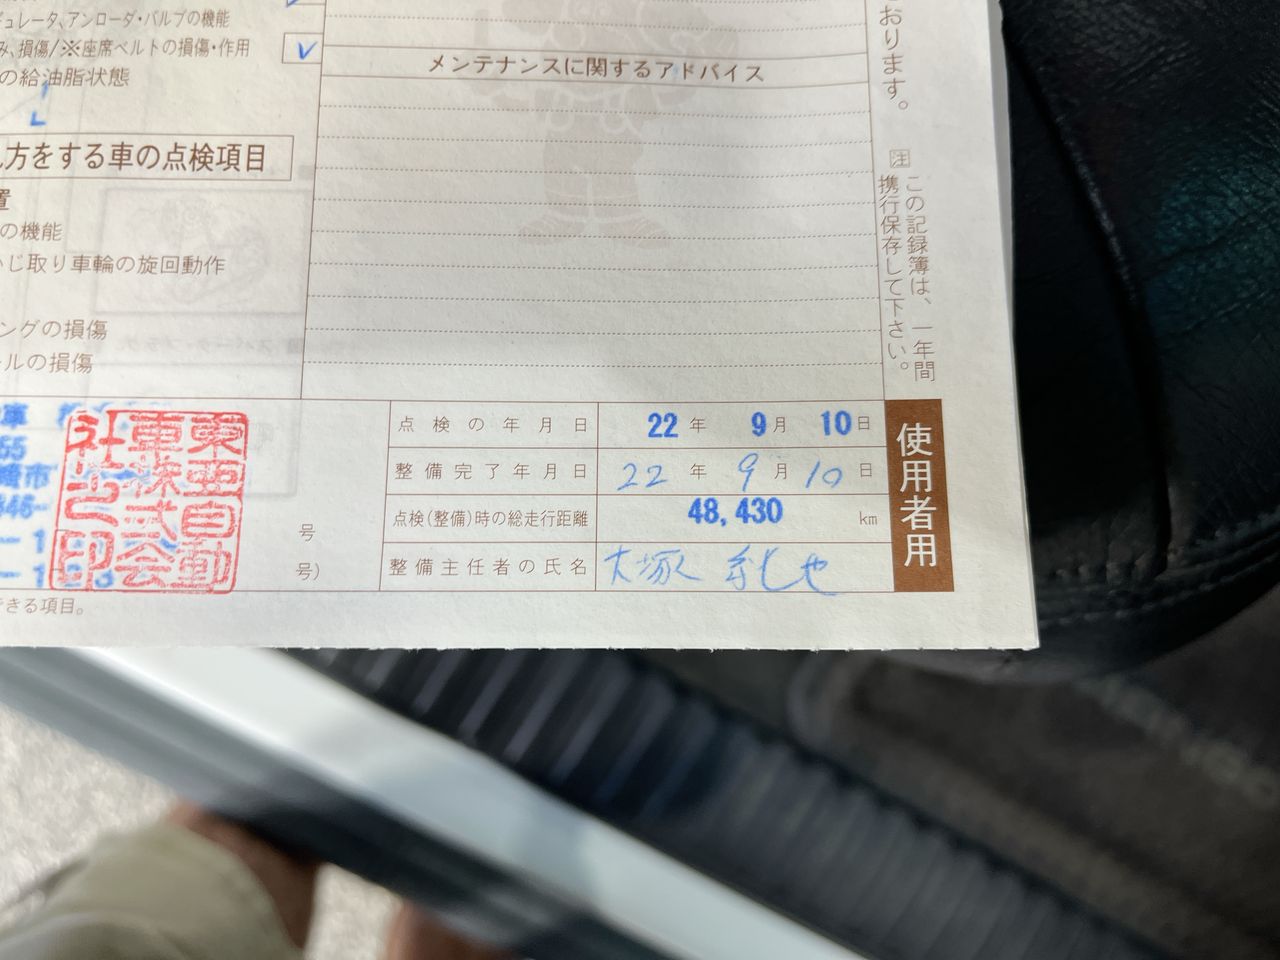 ギュレータ、アンローダ・バルブの機能
み、損傷/※座席ベルトの損傷・作用
の給油脂状態
方をする車の点検項目
置
の機能
じ取り車輪の旋回動作
ングの損傷
ールの損傷
メンテナンスに関するアドバイス
おります。
注 この記録簿は、一年間
携行保存して下さい。
車
55
崎市
東亜自動
車株式会
社之印
号
号)
点検の年月日 22年 9月 10日
整備完了年月日 22年 9月 10日
点検(整備)時の総走行距離 48,430 km
整備主任者の氏名 大塚
使用者用
できる項目。